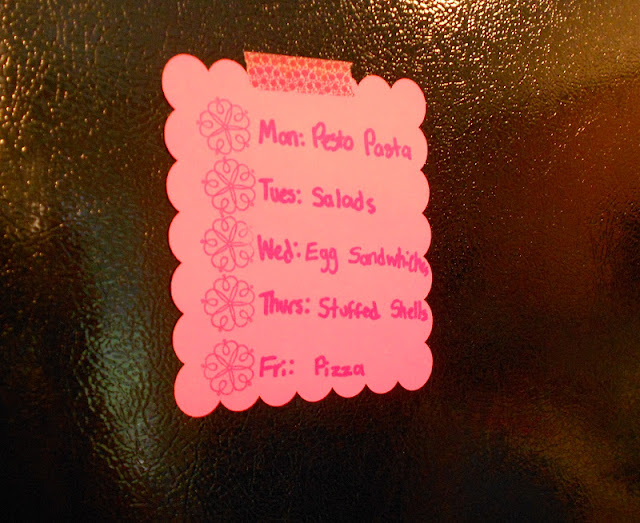 Mon: Pesto Pasta
Tues: Salads
Wed: Egg Sandwhiches
Thurs: Stuffed Shells
Fri: Pizza